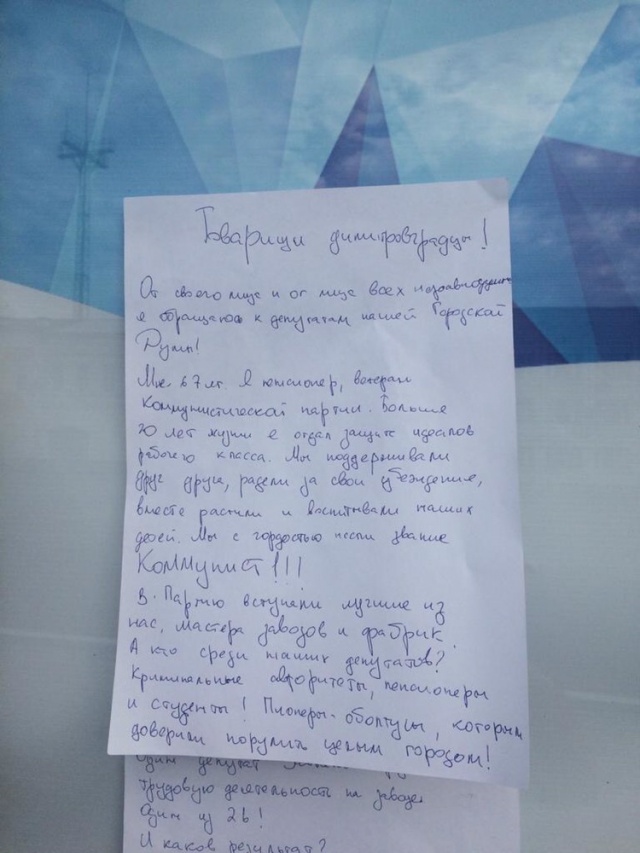 Товарищи димитровградцы!
От своего лица и от лица всех
я обращаюсь к депутатам нашей Городской
Думы!
Мне 67 лет. Я пенсионер, ветеран
Коммунистической партии. Больше
30 лет жизни я отдал защите идеалов
рабочего класса. Мы поддерживали
друг друга, радели за свои убеждения,
вместе растили и воспитывали наших
детей. Мы с гордостью несли звание
Коммунист!!!
В Партию вступали лучшие из
нас, мастера заводов и фабрик.
А кто среди наших депутатов?
Криминальные авторитеты, пенсионеры
и студенты! Пионеры-оболтусы, которым
доверили порулить целым городом!
Один депутат
трудовую деятельность на заводе.
Один из 26!
И каков результат?